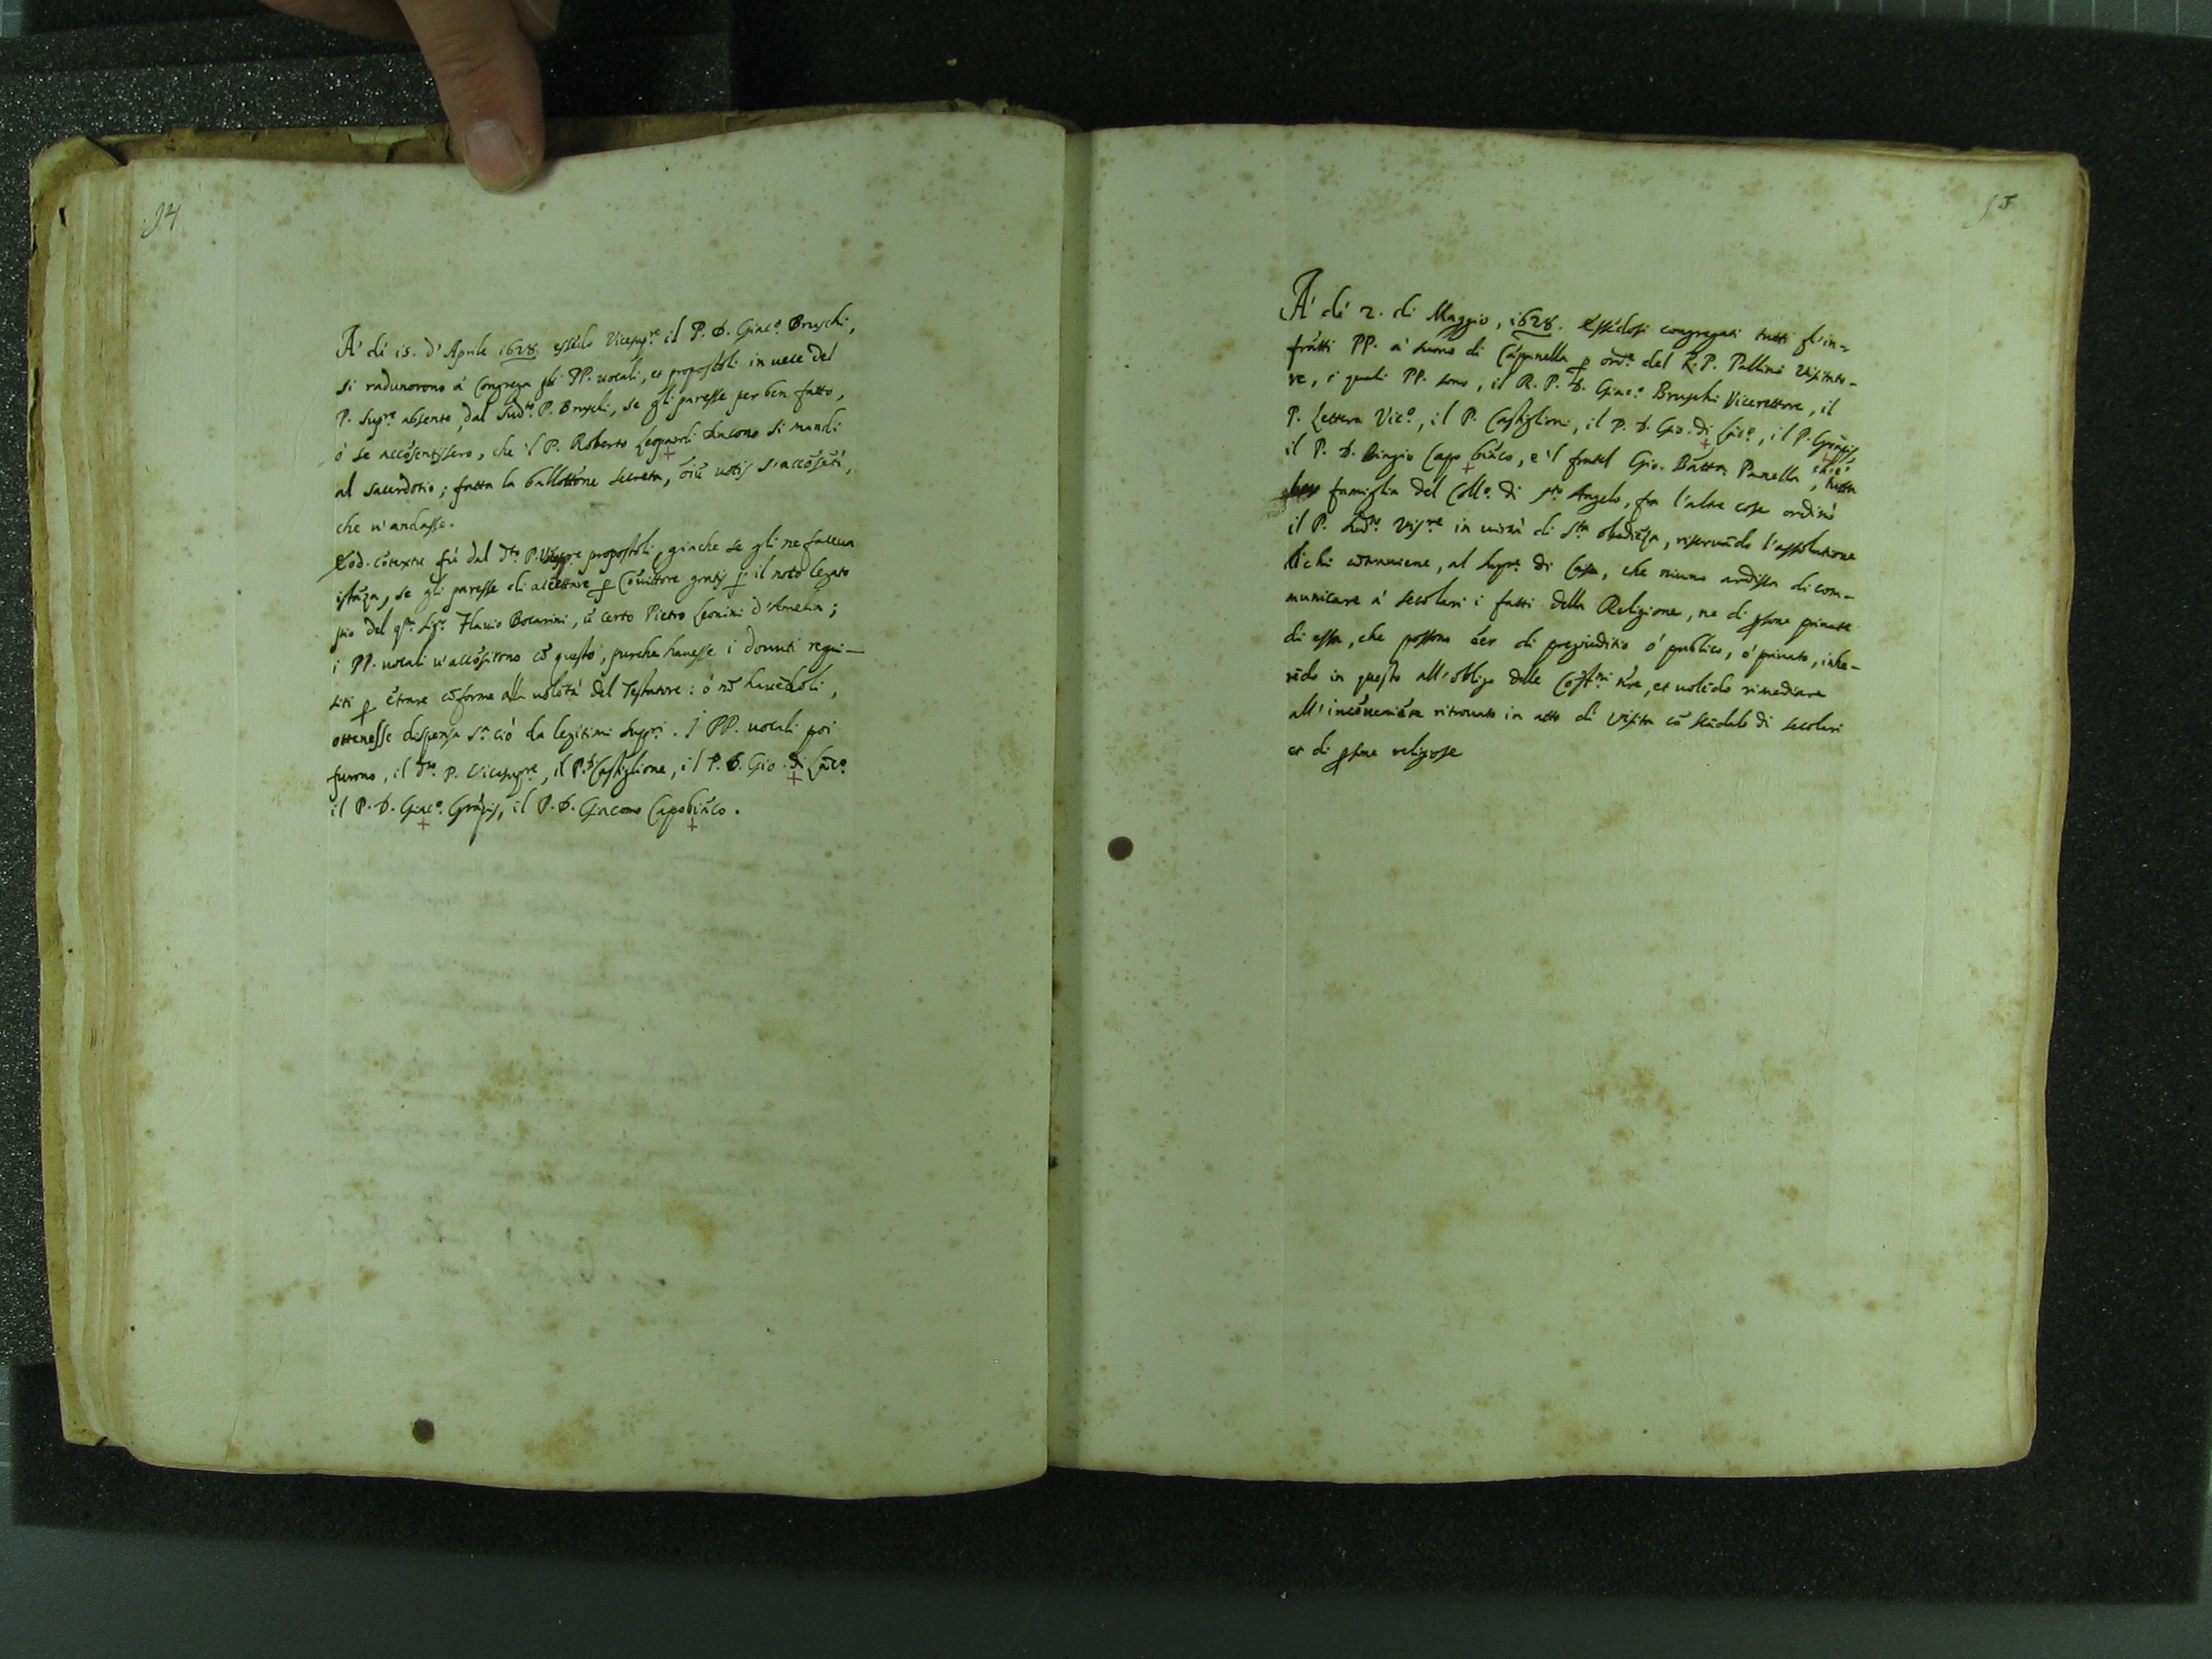 94
A' dì 15. d'Aprile 1628. essẽdo Vicesupre il P. D. Giaco. Bruschi,
si radunorono à Congrega gli PP. vocali, et propostoli in vece del
P. Supre absente, dal Sudto P. Bruschi, se gli paresse per ben fatto,
ò se accõsentissero, che 'l P. Roberto Leopardi diacono si mandi
al sacerdotio; fatta la ballottõne secreta, oĩũ votis s'accõsẽtì,
che v'andasse.
Eod. fù dal dto P. Vicesupre propostoli, giache se gli ne faceva
istãza, se gli paresse di accettare ꝑ Cõvittore gratis ꝑ il noto legato
pio del qm Sigr Flavio Bocarini, ũ certo Pietro Leonini d'Amelia;
i PP. vocali v'accõsẽtirono cõ questo, purche havesse i dovuti requi-
siti ꝑ ẽtrare cõforme alla volõtà del Testatore: ò nõ havẽdoli,
ottenesse dispensa sa ciò da legitimi Supri. I PP. vocali poi
furono, il dto P. Vicesupre, il P. D. Castiglione, il P. D. Gio. di
il P. D. Giaco. il P. D. Giacomo Capobiãco.
95
A' dì 2. di Maggio, 1628. Essẽdosi congregati tutti gl'in-
fratti PP. à suono di Cãpanella ꝑ orde del R. P. Pallini Visitato-
re, i quali PP. sono, il R. P. D. Giaco. Bruschi Vicerettore, il
P. Lettera Vico, il P. Castiglioni, il P. D. Gio. di il P.
il P. D. Capo biãco, e 'l fratel Gio. Batta Panella, ch'è tutta
famiglia del Collo di sto Angelo, fra l'altre cose ordinò
il P. Sudto Visre in virtù di Sta obediẽza, riservãdo l'assolutione
à chi cõtraviene, al Supre di Casa, che niuno ardisca di com-
municare à secolari i fatti della Religione, ne di ꝑsone private
di essa, che possono ẽer di pregiuditio ò publico, ò privato, inhe-
rẽdo in questo all'obligo delle Costni nr̃e, et volẽdo rimediare
all'incõveniẽte ritrovato in atto di Visita cõ scãdalo di secolari
et di ꝑsone religiose